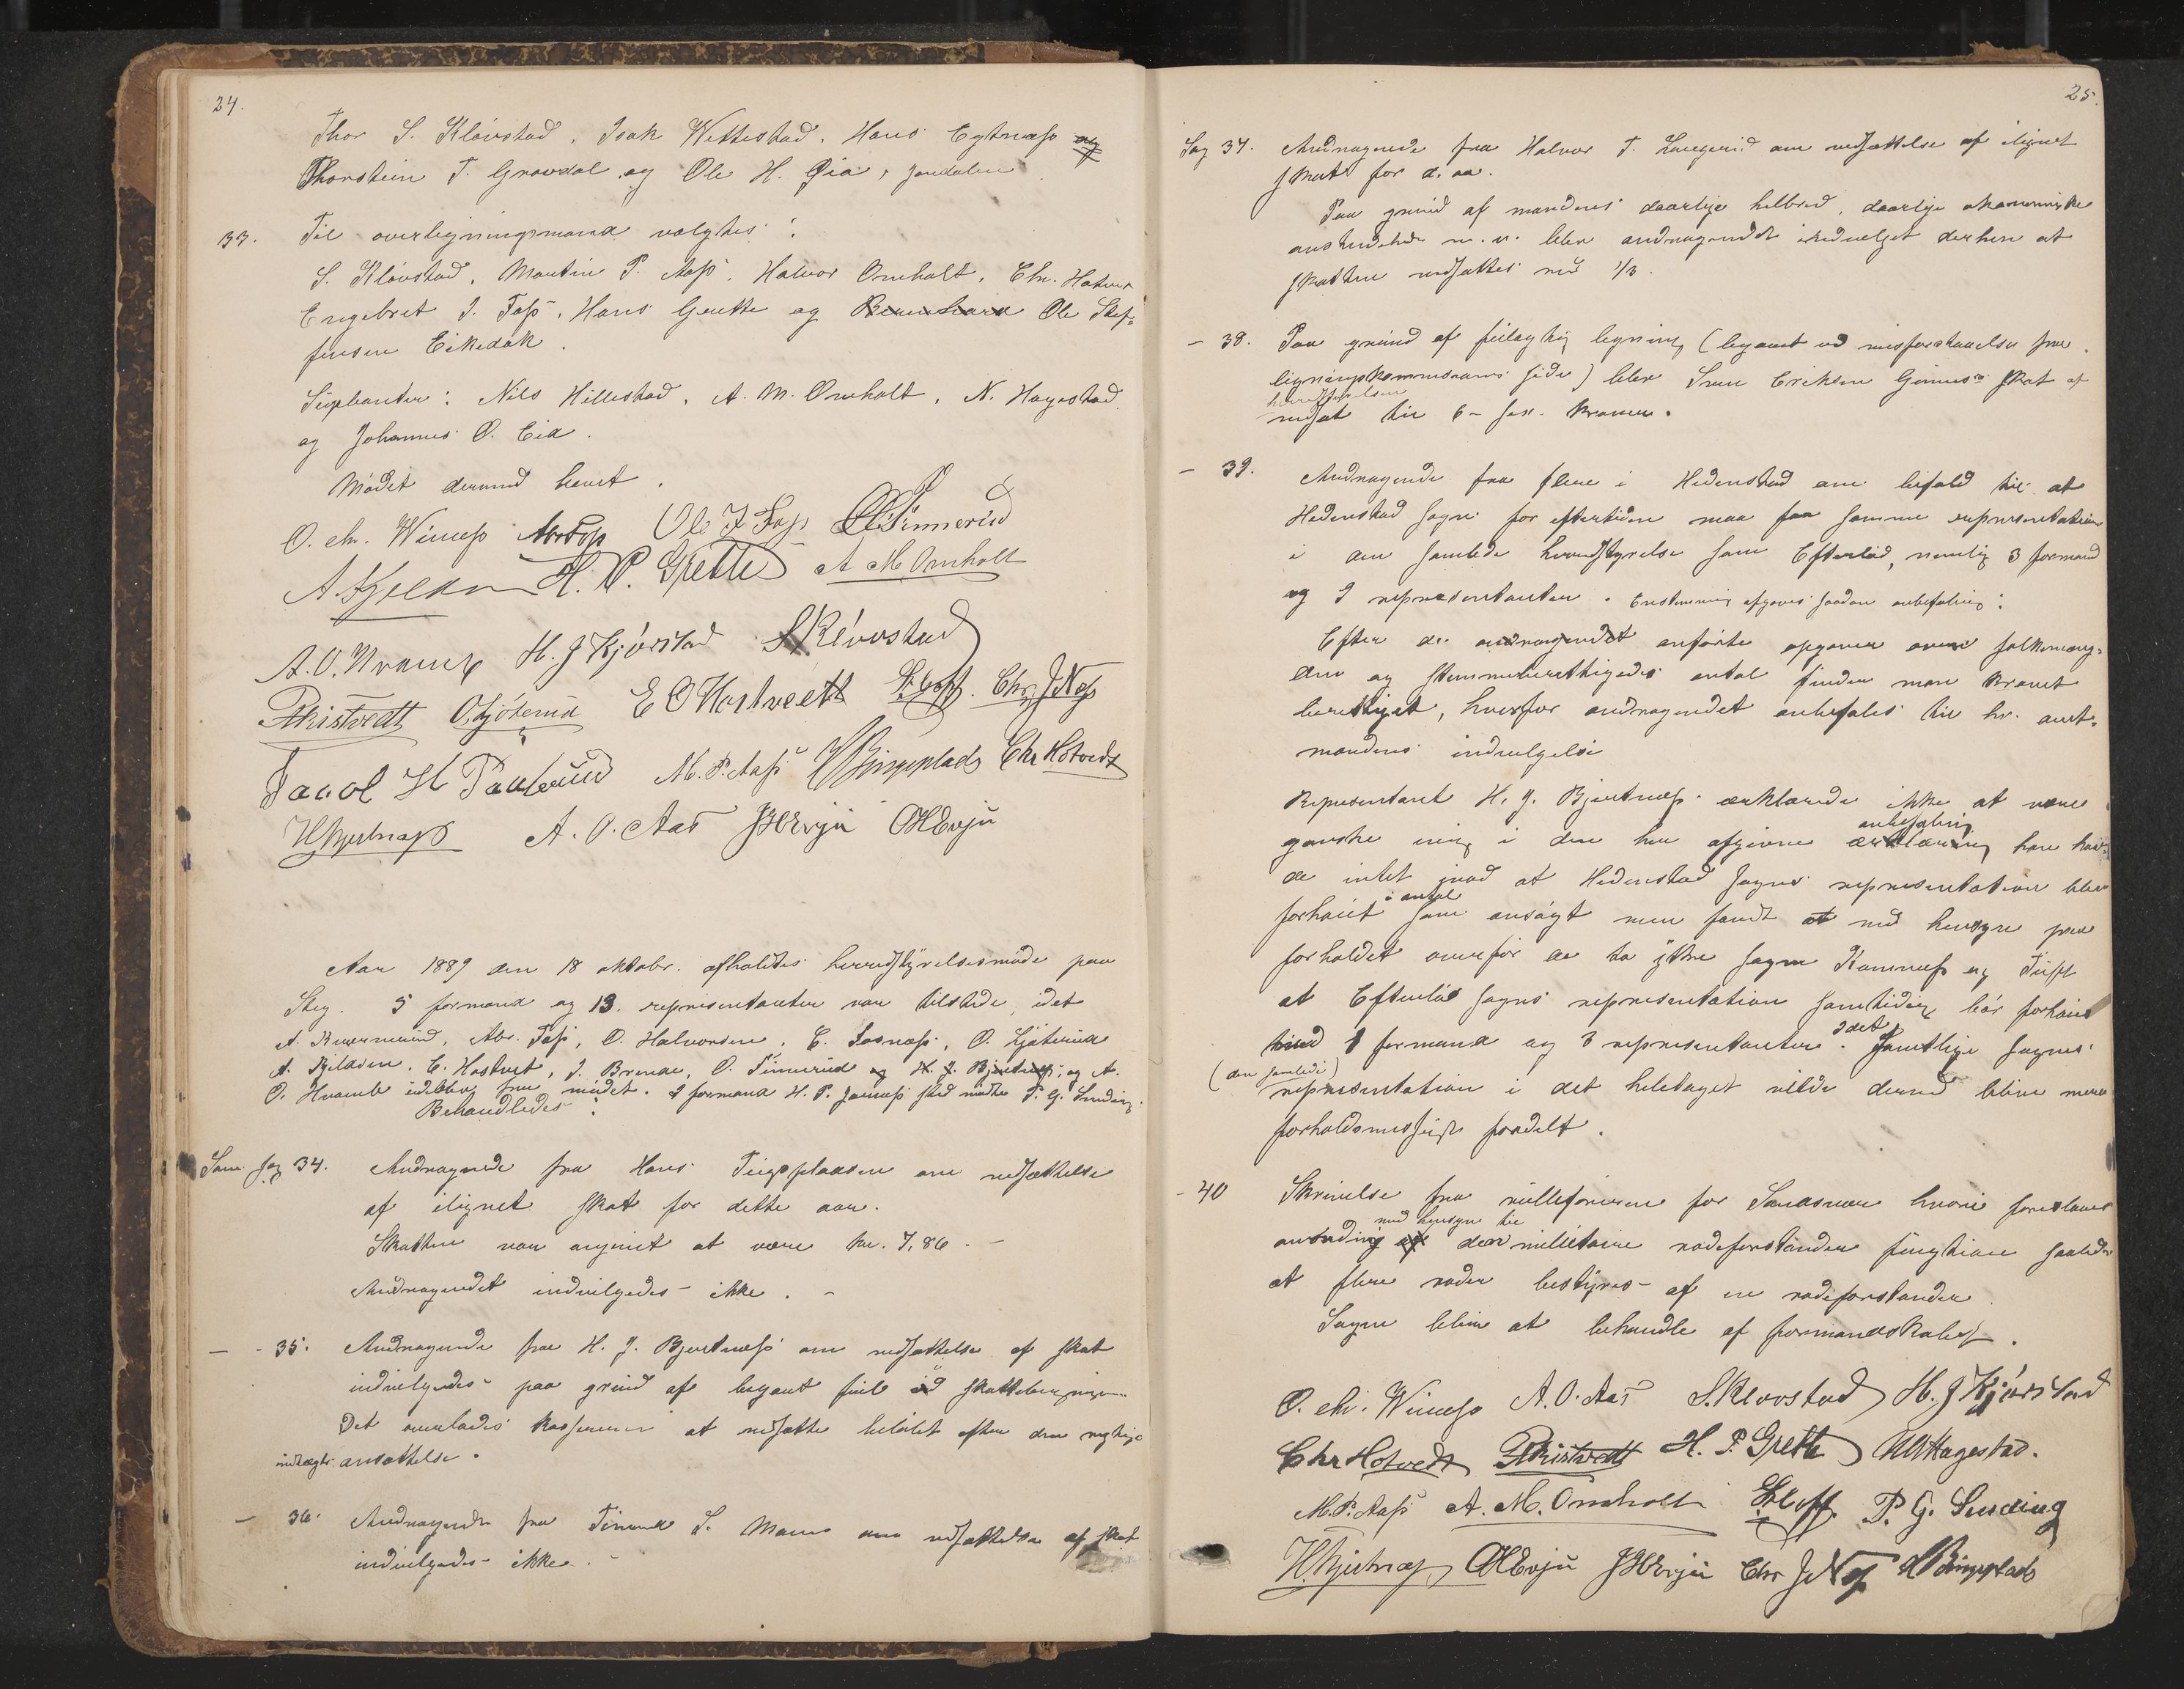 24.
Thor S. Klövstad, Isak Wettestad, Hans Egtnæss og
Thorstein T. Gravdal og Ole H. Gia, Jondalen
33. Til overligningsmænd valgtes:
S. Klövstad, Martin P. Aass, Halvor Omholt, Chr. Hotvedt
Engebret J. Foss, Hans Grette og Ole Stef-
fensen Eikedok.
Suppleanter: Nils Hillestad, A. M. Omholt, N. Hagestad
og Johannes O. Eia.
Mödet dermed hævet.
O. Chr. Winness Ole J Foss O. Tinnerud
A. Kjeldsen H. P. Grette A M. Omholt
A. O. Hvamb H. J Kjörstad S Klövstad
O. Ljöterud E O Hostvedt Chr J Næss
Jacob H M. P. Aass H Bingeplads Chr Hotvedt
H Bjertnæss A. O. Aas J H Evju O H Evju
Aar 1889 den 18 oktobr. afholdtes herredstyrelsesmöde paa
Steg. 5 formænd og 13. representanter var tilstede, idet
A. Kværnerud, Abr. Foss, O. Halvorsen, C. Fosnæss, O. Ljöterud
A. Kjeldsen, E. Hostvet, J. Brenne, O. Tinnerud og H. J. Bjertnæss, og A.
O. Hvamb udeblev fra mödet. I formand H. P. Jarness sted mödte P. G. Sinding.
Behandledes:
Som sag 34. Andragende fra Hans Teigsplassen om nedsættelse
af ilignet skat for dette aar.
Skatten var angivet at være kr. 7,86. –
Andragendet indvilgedes ikke. –
— - 35. Andragende fra H. J. Bjertnæss om nedsættelse af skat
indvilgedes paa grund af begaaet feil ved skatteberegningen.
Det overlades kassereren at nedsætte belöbet efter den rigtige
indtægts ansættelse.
— 36. Andragende fra S. Moen om nedsættelse af skat
indvilgedes ikke. –
25.
Sag 37. Andragende fra Halvor T. om nedsættelse af ilignet
skat for d. aa.
Paa grund af mandens daarlige helbred, daarlige ökonomiske
omstendigheder m. v. blev andragendet indvilget derhen at
skatten nedsættes med 1/3.
— 38. Paa grund af feilagtig ligning (begaaet ved misforstaaelse fra
ligningskommissionens side) blev Sven Eriksen skat af
herredstyrelsen
nedsat til 6 – sex – kroner.
— 39. Andragende fra flere i Hedenstad om bifald til at
Hedenstad sogn for eftertiden maa faa samme representation
i den samlede herredstyrelse som Efteløt, nemlig 3 formænd
og 9 representanter. Enstemmig afgaves saadan anbefaling:
Efter de andragendet anförte opgaver over folkemæng-
den og stemmeberettigedes antal finder man kravet
berettiget, hvorfor andragendet anbefales til hr. amt-
mandens indvilgelse
Representant H. J. Bjertnæss erklærede ikke at være
anbefaling
ganske enig i den her afgivne erklæring han hav-
de intet imod at Hedenstad sogns representation blev
i antal
forhöiet som ansögt men fandt at med hensyn paa
forholdet overfor de to ytre sogn Komnæss og Tuft
at Efteløt sogns representation samtidig bör forhöies
med 1 formand og 3 representanter. Idet samtlige sognes
(den samlede)
representation i det heletaget vilde derved blive mere
forholdsmessigt fordelt.
- 40 Skrivelse fra rulleföreren for Sandsvær hvori foreslaaes
med hensyn til
anordning af den militære rodeforstander funktion saaledes
at flere roder bestyres af en rodeforstander.
Sagen bliver at behandle af formandskabet.
O. Chr. Winness A. O. Aas S. Klovstad H. J Kjörstad
Chr Hotvedt H. P. Grette N Hagestad.
M. P. Aass A. M. Omholt P. G. Sinding
H. Bjertnæss O H Evju J H Evju Chr J Næss H Bingeplads